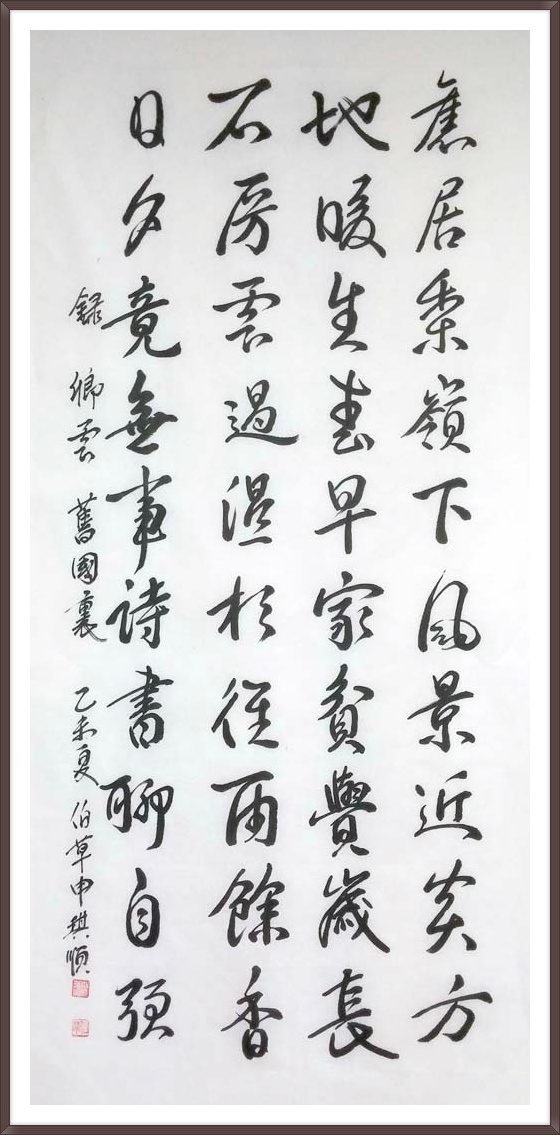 舊居梨嶺下風景近炎方
地暖生春早家貧覺歲長
石房雲過湿杉徑雨餘香
日夕竟無事詩書聊自強
錄 卿雲 舊國裏 乙未夏 伯草申琪順